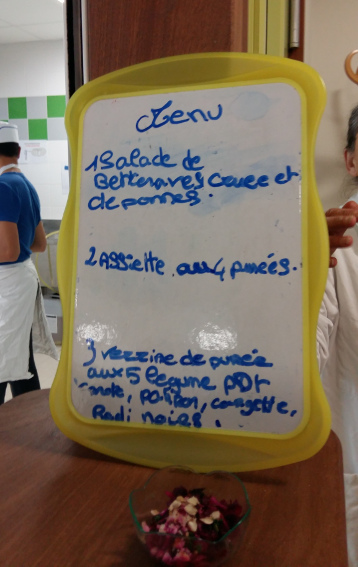 Menu
1 Salade de
Betteraves Cavee et
de pommes.
2 Assiette aux 4 purées.
3 verrine de purée
aux 5 légume PDT
potiron, courgette,
Radi noires,